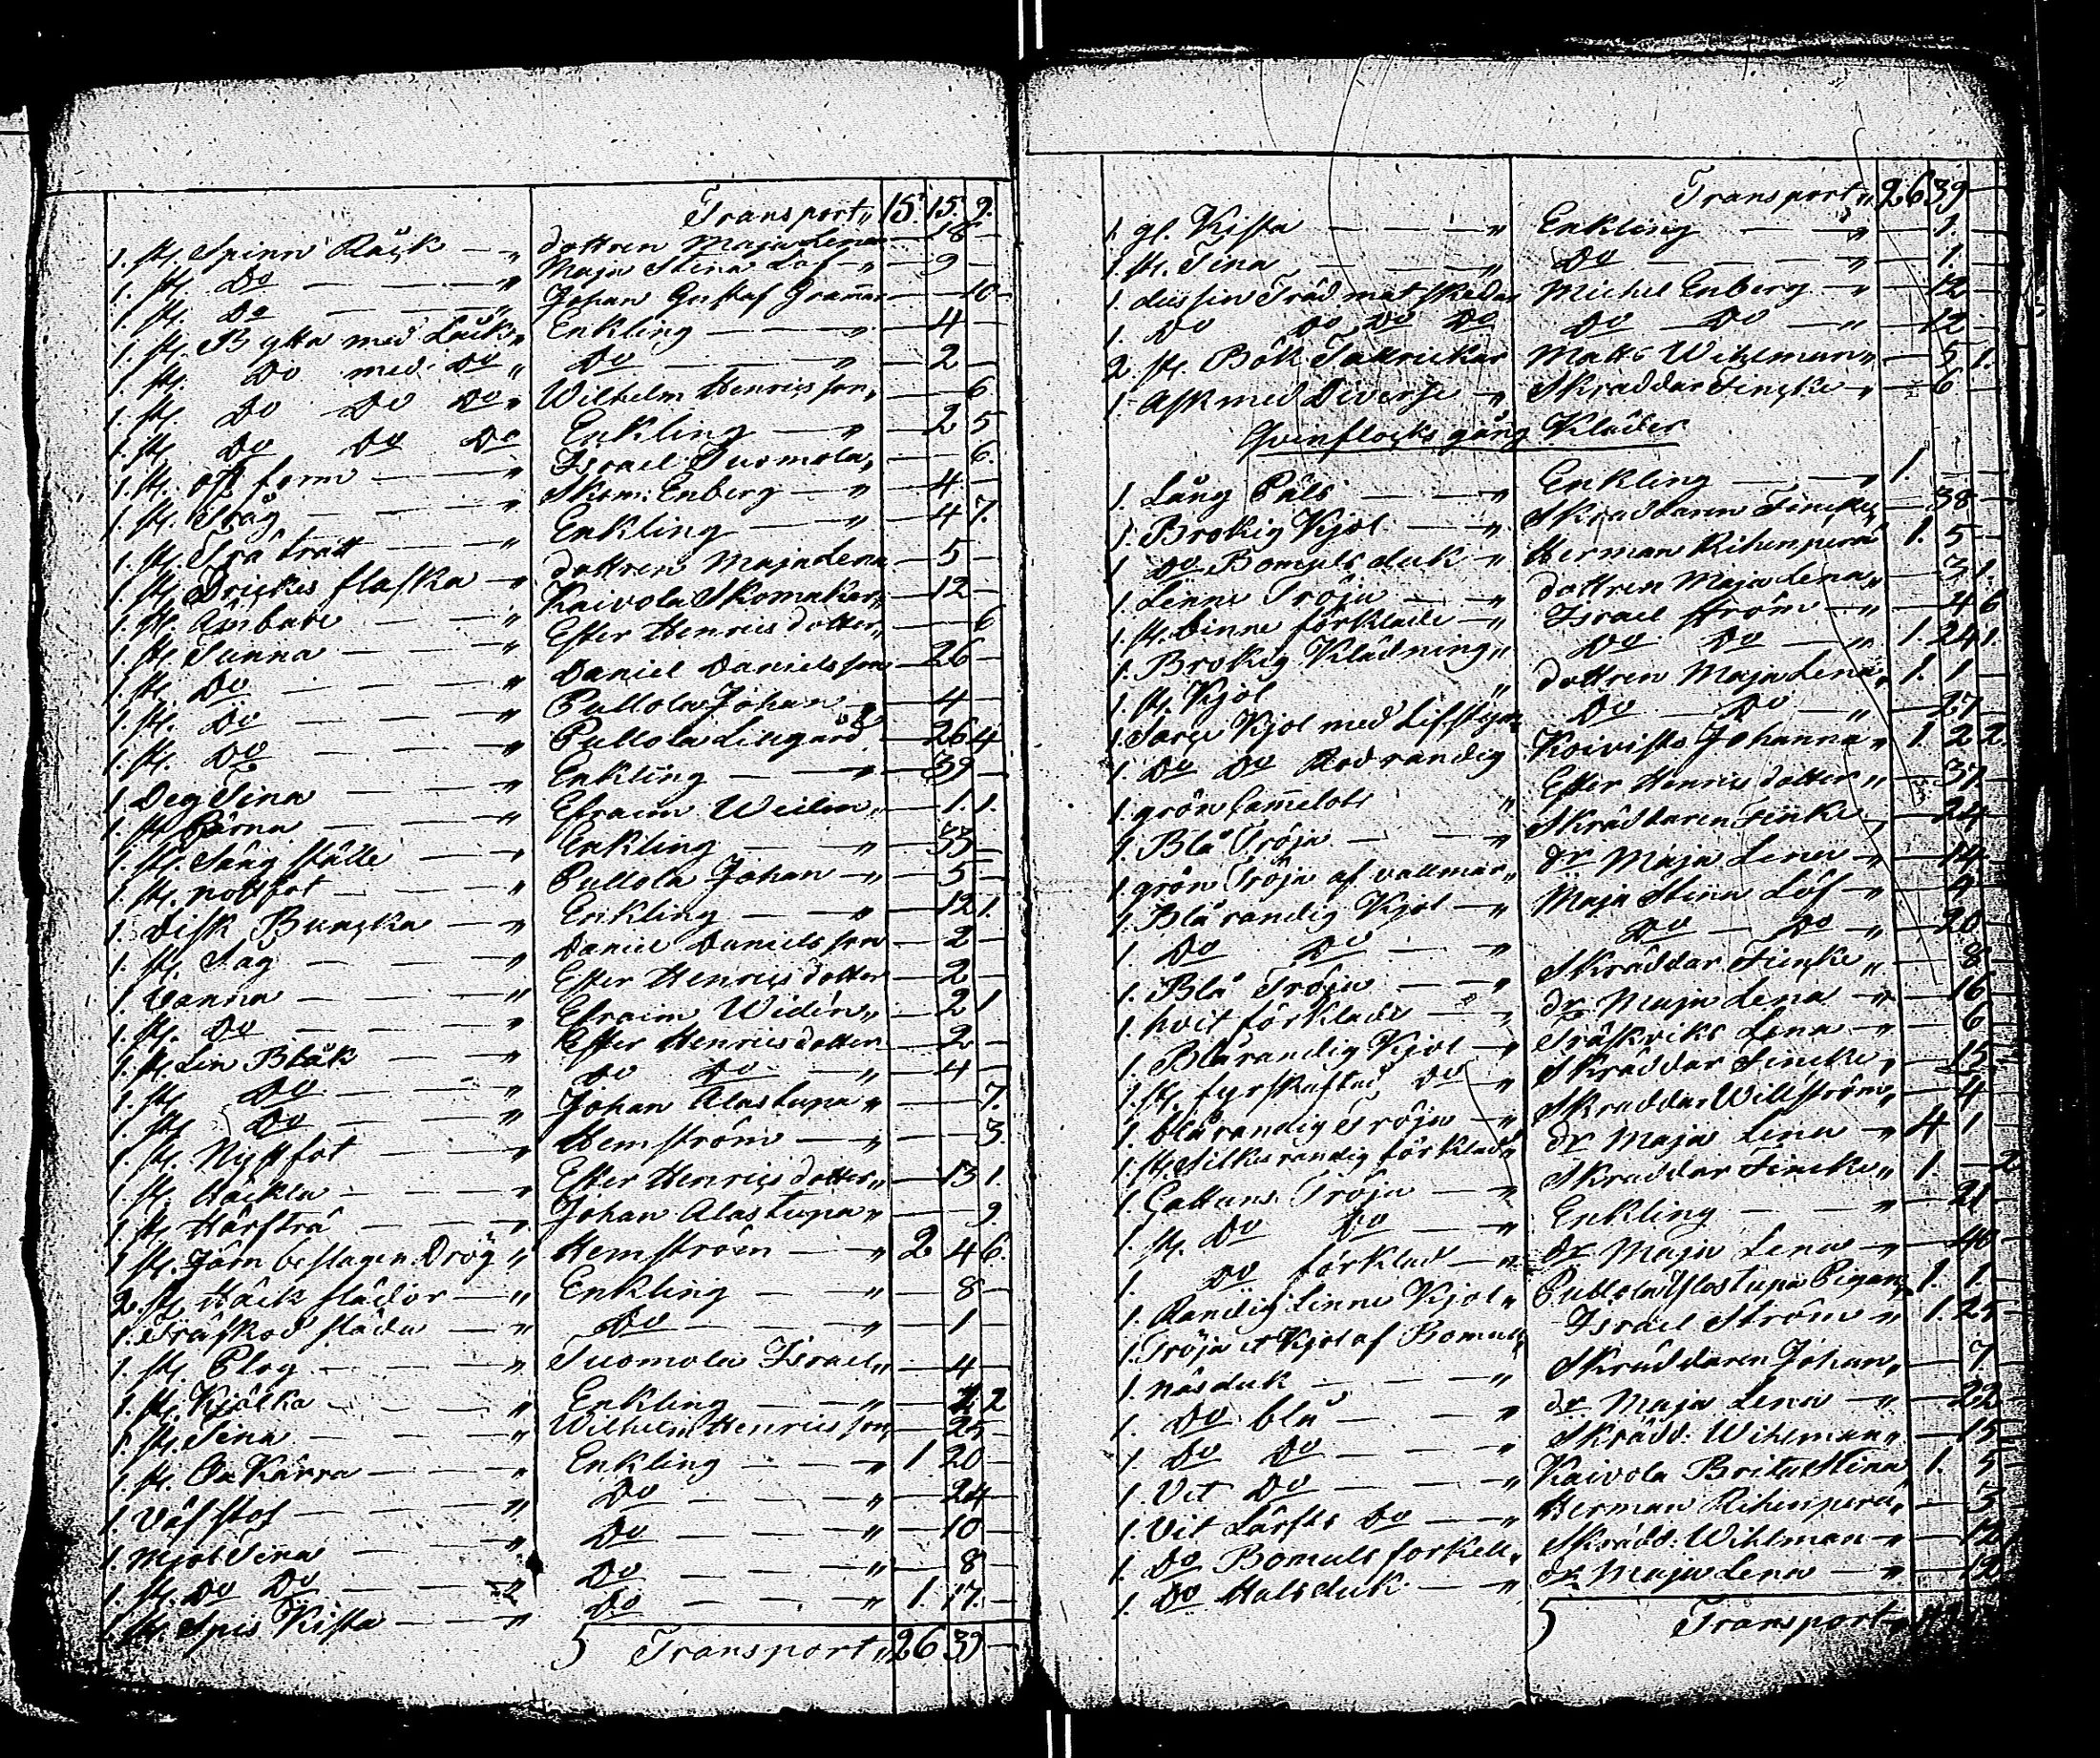 Transport " 15. 15. 9.
1. st. Spinn Råck — " dottren Maja Lena — 18 —
1. st. Do — — " Maja Stina Löf — " — 9 —
1. st. Do — — " Johan Gustaf — — 10
1. st. Bytta med Låck " Enkling — — " — 4 —
1. st. Do med Do " Do — — " — 2 —
1. st. Do Do Do " Wilhelm Henricsson " — — 6
1. st. Do Do Do Enkling — " — 2 5
1. st. ost form — " Israel Tuomola " — — 6.
1. st. Tråg — — " Skom: Enberg — " — 4 —
1. st. Trä tratt — " Enkling — — " — 4 7.
1. st. Drickes flaska — " dottren Maja Lena — 5 —
1. st. Ämbare — — " Kaivola Skomakar " — 12 —
1. st. Tunna — — " Ester Henrics dotter " — — 6
1. st. Do — — " Daniel Danielsson — 26 —
1. st. Do — — " Pullola Johan — 4 —
1. st. Do — — " Pullola — 26 4
1. Deg Tina — — " Enkling — — " — 39 —
1. st. Bärna — — " Efraim Widen " — 1. 1.
1. st. Säng ställe — " Enkling — — " — 33 —
1. st. nottfat — — " Pullola Johan — " — 5 —
1. Disk Buncka — " Enkling — — " — 12 1.
1. st. Såg — — " Daniel Danielsson — 2 —
1. Vanna — — " Ester Henrics dotter — 2 —
1. st. Do — — " Efraim Widén " — 2 1
1. st. Lin Bråk — — " Ester Henrics dotter — 2 —
1. st. Do — — " Do Do — " — 4 —
1. st. Do — — " Johan Alastupa " — — 7.
1. st. Nystfot — — " Hemström — — " — — 3
1. st. Häckla — — " Ester Henrics dotter " — 13 1.
1. st. Hårstrå — — " Johan Alastupa " — — 9
1 st. Järn beslagen Drög " Hemström — — " 2 4 6.
2. st. Häck slädor — " Enkling — — " — 8 —
1. Träskod släda — " Do — — — " — 1 —
1. st. Plog — — " Tuomola Israel " — 4 —
1. st. Kjälka — — " Enkling — — " — 2
1. st. Tina — — " Wilhelm Henricsson — 25 —
1. st. Kärra — — " Enkling — — " 1 20 —
1. Väfstol — — " Do — — — " — 24 —
1. Mjöl Tina — — " Do — — — " — 10 —
1. st. Do Do — — Do — — — " — 8 —
1. st. Spis Kista — — " Do — — — " 1. 17. —
Transport " 26 39 —
Transport " 26 39 —
1. gl. Kista — — — " Enkling — — " — 1. —
1. st. Tina — — — " Do — — — " — 1 —
1. dussin Träd mat skedar Michel Enberg — " — 12 —
1. Do Do Do Do Do — Do — " — 12 —
2. st. Bök Tallrickar Matts Wihlman " — 5 1.
1. Ask med Diverse — " Skräddar Fincke " — 6 —
Qvinfolcks gång Kläder
1. Lång Päls — — " Enkling — — " 1. — —
1. Brokig Kjol — — " Skräddaren Fincke " — 38 —
1. Do Bomuls duk — " Herman Rihenperä 1. 5 —
1. Linne Tröja — — " dottren Maja Lena " — 3 1.
1. st. Linne förkläde — " Israel Ström — " — 4 6
1. Brokig Klädning " Do Do — " 1. 24 1.
1. st. Kjol " dottren Maja Lena " 1. 1 —
1. Kjol med Lifstyke Do — Do — " — 27 —
1. Do Do Rödrandig Koivisto Johanna " 1. 2 2.
1. grön Camelots " Ester Henrics dotter " — 37 —
1. Blå Tröja — — " Skräddaren Fincke — 24 —
1. grön Tröja af vallmar " dr Maja Lena " — 14 —
1. Blå randig Kjol — " Maja Stina Löf — " — 9 —
1. Do Do — — " Do — Do — " — 20 —
1. Blå Tröja — — " Skräddar Fincke " — 8 —
1. hvit förkläde — — " dr Maja Lena — " — 16 —
1. Blårandig Kjol — " Träskviks Lena — " — 6 —
1. st. fyrskaftad Do — " Skräddar Fincke " — 15 —
1. blårandig Tröja — " Skräddar Willström " — 4 —
1. st. Silkes randig förkläde dr Maja Lena — " 4 1 —
1. Cattuns Tröja — " Skräddar Fincke " 1. — 2
1. st. Do Do — — " Enkling — — " — 21 —
1. Do förkläd — " dr Maja Lena — " — 40 —
1. Randig Linne Kjol " Pullola Pigan " 1. 1. —
1. Tröja et Kjol af Bomull " Israel Ström " 1. 25 —
1. näsduk — — — " Skräddaren Johan " — 7 —
1. Do blå — — " dr Maja Lena — " — 22 —
1. Do Do — — " Skrädd: Wihlman " — 15 —
1. Vit Do — — " Kaivola Brita Stina 1. 5 —
1. Vit Lärfts Do — " Herman Rihenperä " — 5 —
1. Do Bomuls " Skrädd: Wihlman " —
1. Do Halsduk — " dr Maja Lena — " — 12
Transport "